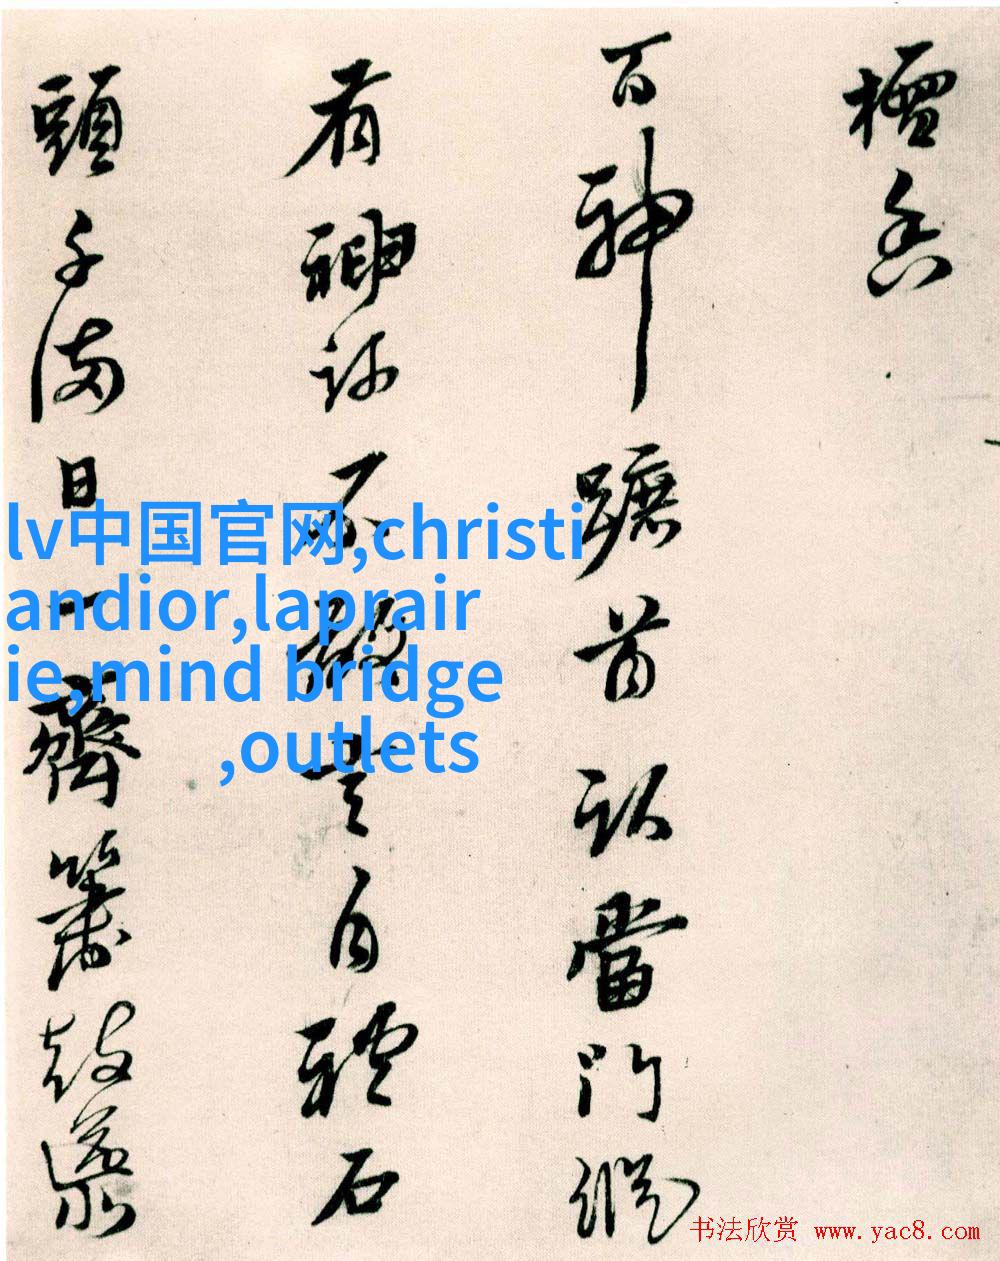 檀香
百神首當門縱
有神不敢言自石
頭日一齊簫鼓
lv中国官网,christi
andior,laprair
ie,mind bridge
,outlets
书法欣赏 www.yac8.com